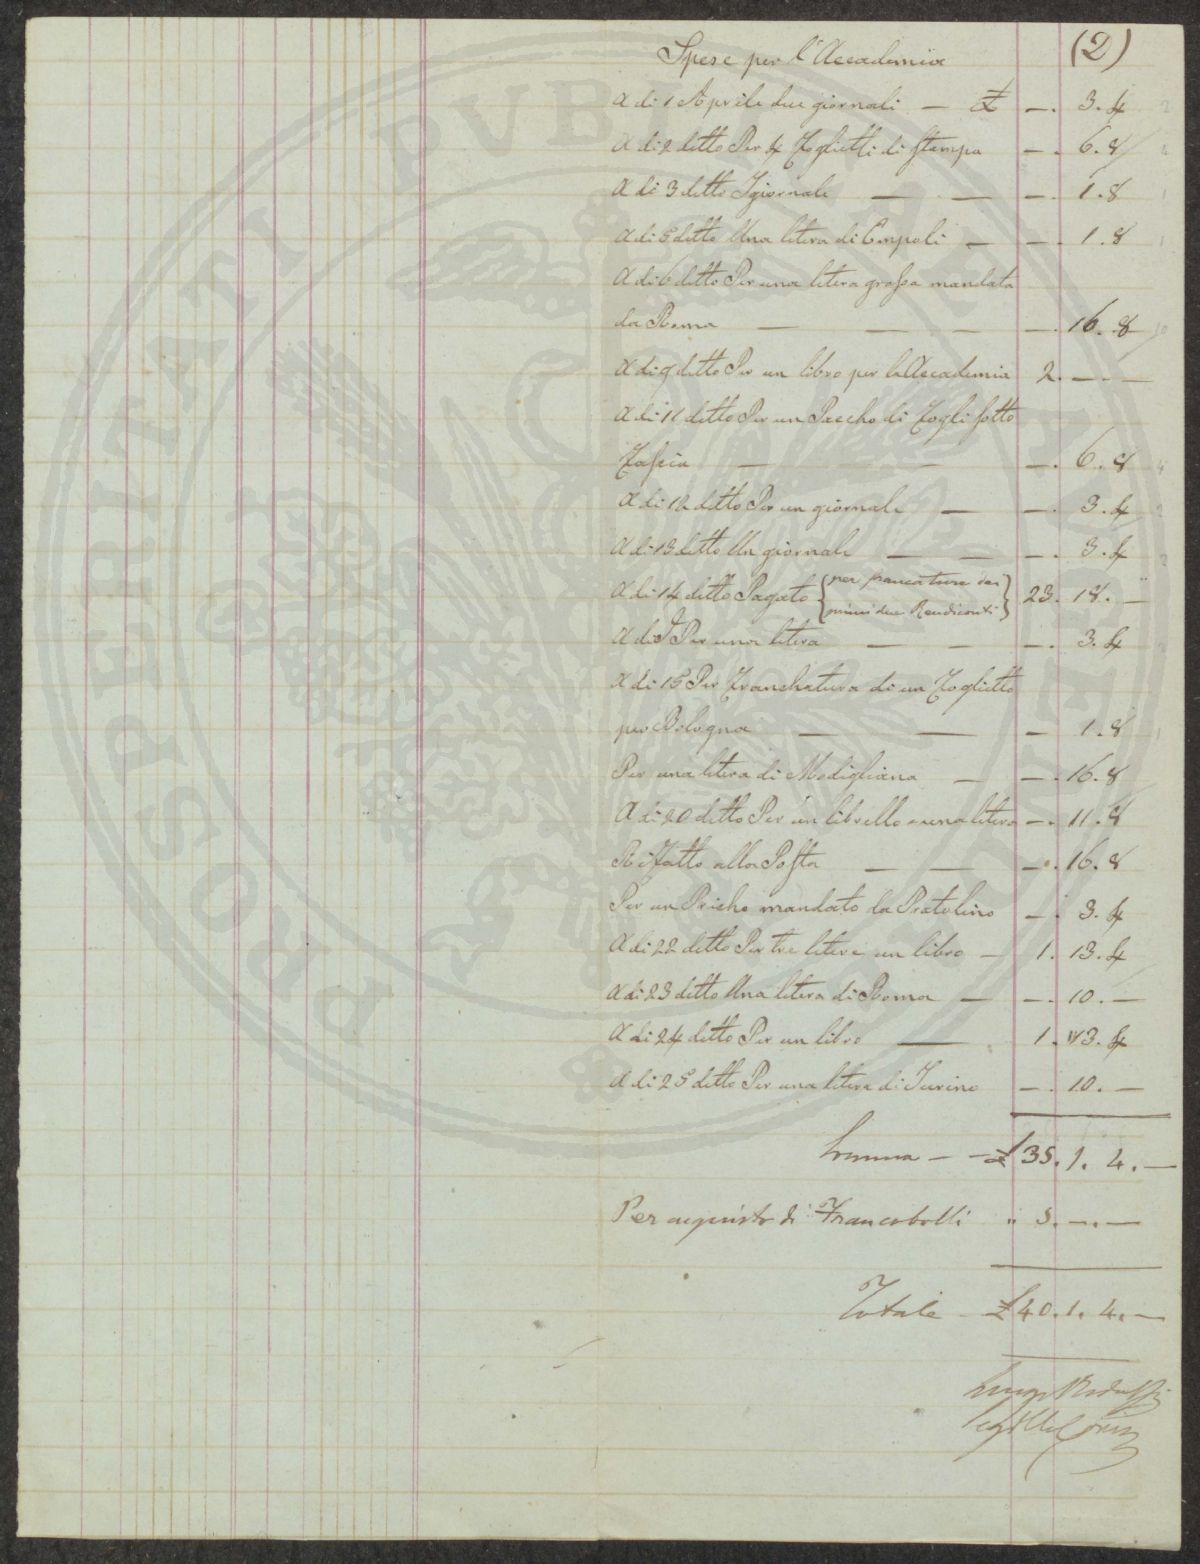 (2)
Spese per l'Accademia
A di 1 Aprile due giornali — £ —. 3. 4
A di 2 ditto Per 4 Foglietti di stampa —. 6. 8
A di 3 ditto I giornale — — —. 1. 8
A di 5 ditto Una litera di Empoli — —. 1. 8
A di 6 ditto Per una litera grossa mandata
da Roma — — — —. 16. 8
A di 9 ditto Per un libro per la Accademia 2. — —
A di 11 ditto Per un Paccho di Fogli sotto
Fascia — — — —. 6. 8
A di 12 ditto Per un giornale — —. 3. 4
A di 13 ditto Un giornale — — —. 3. 4
A di 14 ditto Pagato {per francature dei primi due Rendiconti} 23. 18. —
A di Per una litera — — —. 3. 4
A di 15 Per Franchatura di un Foglietto
per Bologna — — — 1. 8
Per una litera di Modigliana — —. 16. 8
A di 20 ditto Per un librello e una litera —. 11. 8
Rifatto alla Posta — — —. 16. 8
Per un Pricho mandato da Pratolino —. 3. 4
A di 22 ditto Per tre litere e un libro — 1. 13. 4
A di 23 ditto Una litera di Roma — —. 10. —
A di 24 ditto Per un libro — 1. 13. 4
A di 25 ditto Per una litera di Turino —. 10. —
Somma — — £ 35. 1. 4. —
Per acquisto di Francobolli " 5. —. —
Totale — £ 40. 1. 4. —
PROSPERITATI PVBLICAE AVGENDAE